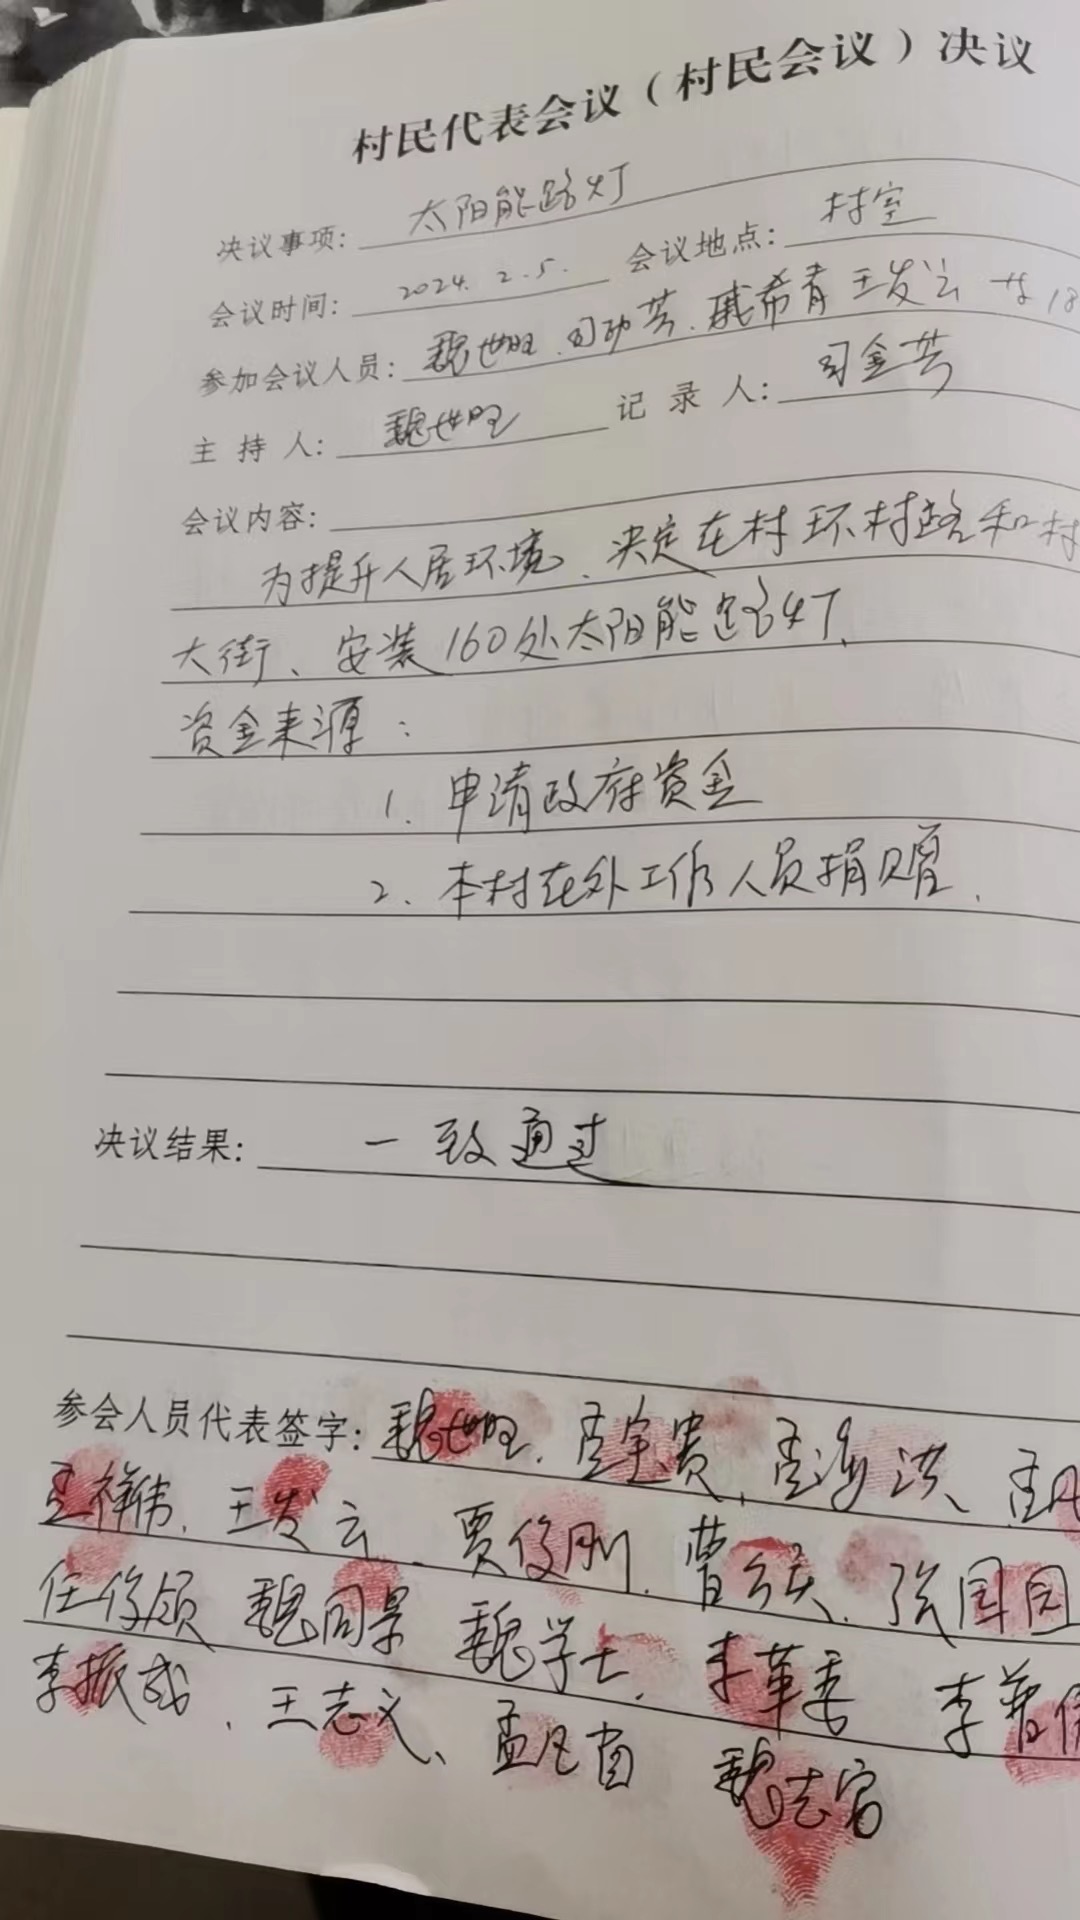 村民代表会议（村民会议）决议
决议事项: 太阳能路灯
会议时间: 2024. 2. 5. 会议地点: 村室
参加会议人员: 魏世旺. 戚希青 王发云 等18
主 持 人: 魏世旺 记 录 人: 司金芳
会议内容:
为提升人居环境、决定在村环村路和村
大街、安装160处太阳能路灯.
资金来源:
1. 申请政府资金
2. 本村在外工作人员捐赠.
决议结果: 一致通过
参会人员代表签字: 魏世旺. 孟宪贵, 孟海洪、
孟祥伟. 王发云、贾俊刚. 张国
任俊领 魏同景 魏学士. 李革委 李
李振成、王志义、孟凡 魏志富